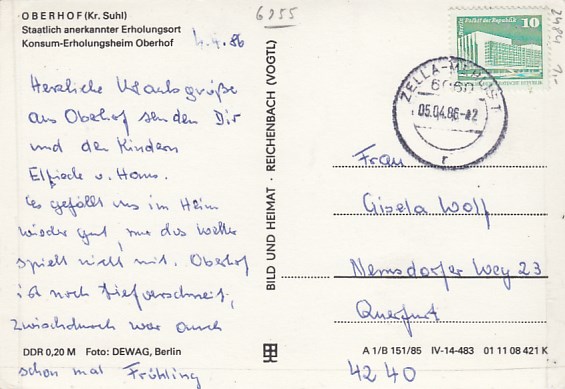 OBERHOF (Kr. Suhl)
Staatlich anerkannter Erholungsort
Konsum-Erholungsheim Oberhof
6255
4.4.86
Herzliche Urlaubsgrüße
aus Oberhof senden Dir
und den Kindern
Elfriede u. Hans.
Es gefällt uns im Heim
wieder gut, nur das Wetter
spielt nicht mit. Oberhof
ist noch tief verschneit,
zwischdurch war auch
schon mal Frühling
DDR 0,20 M Foto: DEWAG, Berlin
BILD UND HEIMAT · REICHENBACH (VOGTL)
Palast der Republik
10
ZELLA-MEHLIS 1
6060
05.04.86-12
r
Frau
Gisela Wolf
Nemsdorfer Weg 23
Querfurt
A 1/B 151/85 IV-14-483 01 11 08 421 K
4240